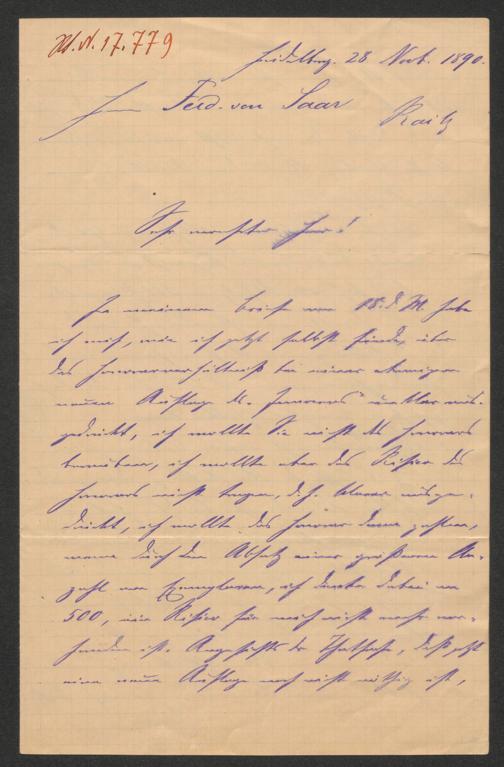 H.N. 17.779
Heidelberg, 28 Novb. 1890.
Herrn Ferd. von Saar
Raitz
Sehr verehrter Herr!
In meinem Briefe vom 18. d. M. habe
ich mich, wie ich jetzt selbst finde, über
das Honorarverhältniß bei einer etwaigen
neuen Auflage d. „Innocens“ unklar aus-
gedrückt, ich wollte Sie nicht des Honorars
berauben, ich wollte aber das Risico des
Honorars nicht tragen, d. h. klarer ausge-
drückt, ich wollte das Honorar dann zahlen,
wenn durch den Absatz einer größeren An-
zahl von Exemplaren, ich dachte dabei an
500, ein Risico für mich nicht mehr vor-
handen ist. Angesichts der Thatsache, daß jetzt
eine neue Auflage noch nicht nöthig ist,